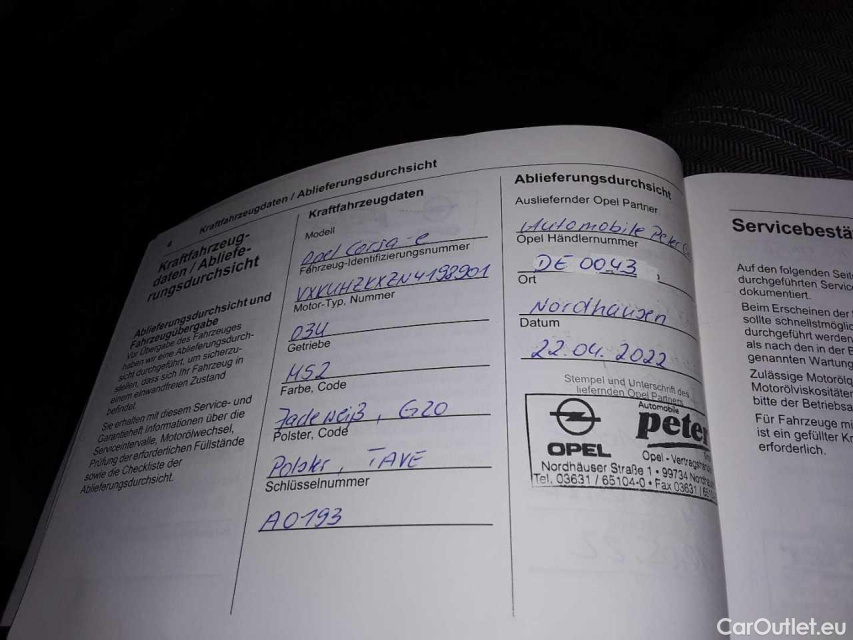 4
Kraftfahrzeugdaten / Ablieferungsdurchsicht
Kraftfahrzeug-
daten / Abliefe-
rungsdurchsicht
Ablieferungsdurchsicht und
Fahrzeugübergabe
Vor Übergabe des Fahrzeuges
haben wir eine Ablieferungsdurch-
sicht durchgeführt, um sicherzu-
stellen, dass sich Ihr Fahrzeug in
einem einwandfreien Zustand
befindet.
Sie erhalten mit diesem Service- und
Garantieheft Informationen über die
Serviceintervalle, Motorölwechsel,
Prüfung der erforderlichen Füllstände
sowie die Checkliste der
Ablieferungsdurchsicht.
Kraftfahrzeugdaten
Modell
Opel Corsa-e
Fahrzeug-Identifizierungsnummer
VXKUHZKXZN4198901
Motor-Typ, Nummer
034
Getriebe
M52
Farbe, Code
Jadeweiß, G20
Polster, Code
Polster, TAVE
Schlüsselnummer
A0193
Ablieferungsdurchsicht
Ausliefernder Opel Partner
Automobile Peter
Opel Händlernummer
DE 0043
Ort
Nordhausen
Datum
22.04.2022
Stempel und Unterschrift des
liefernden Opel Partners
Automobile
peter
OPEL
Opel - Vertragshändl
Nordhäuser Straße 1 • 99734 Nordh
Tel. 03631 / 65104-0 • Fax 03631 / 6510
Servicebestä
Auf den folgenden Seite
durchgeführten Service
dokumentiert.
Beim Erscheinen der
sollte schnellstmöglic
durchgeführt werden
als nach den in der B
genannten Wartung
Zulässige Motorölq
Motorölviskositäten
bitte der Betriebsa
Für Fahrzeuge mi
ist ein gefüllter Kr
erforderlich.
CarOutlet.eu